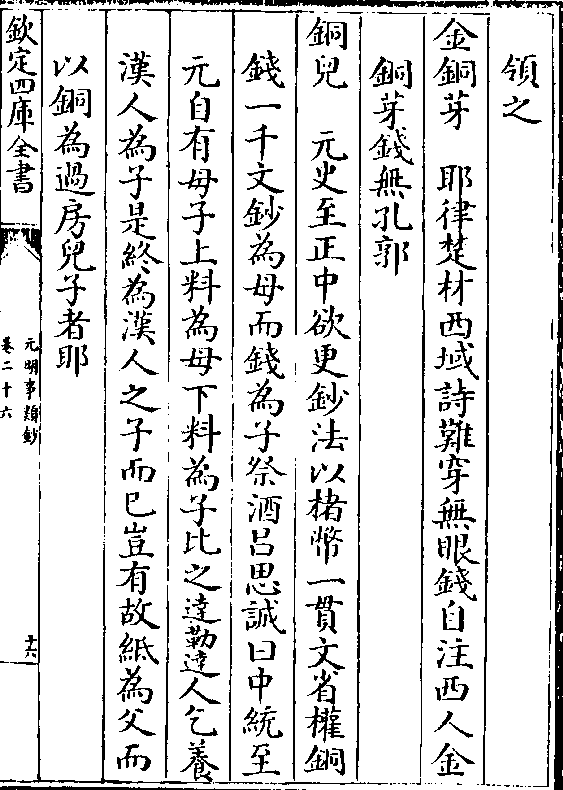 領之
金銅芽　耶律楚材西域詩難穿無眼錢自注西人金
銅芽錢無孔郭
銅兒　元史至正中欲更鈔法以楮幣一貫文省權銅
錢一千文鈔為母而錢為子祭酒呂思誠曰中統至
元自有母子上料為母下料為子比之達勒達人乞養
漢人為子是終為漢人之子而已豈有故紙為父而
以銅為過房兒子者耶
欽定四庫全書
元明事類鈔
卷二十六
十六